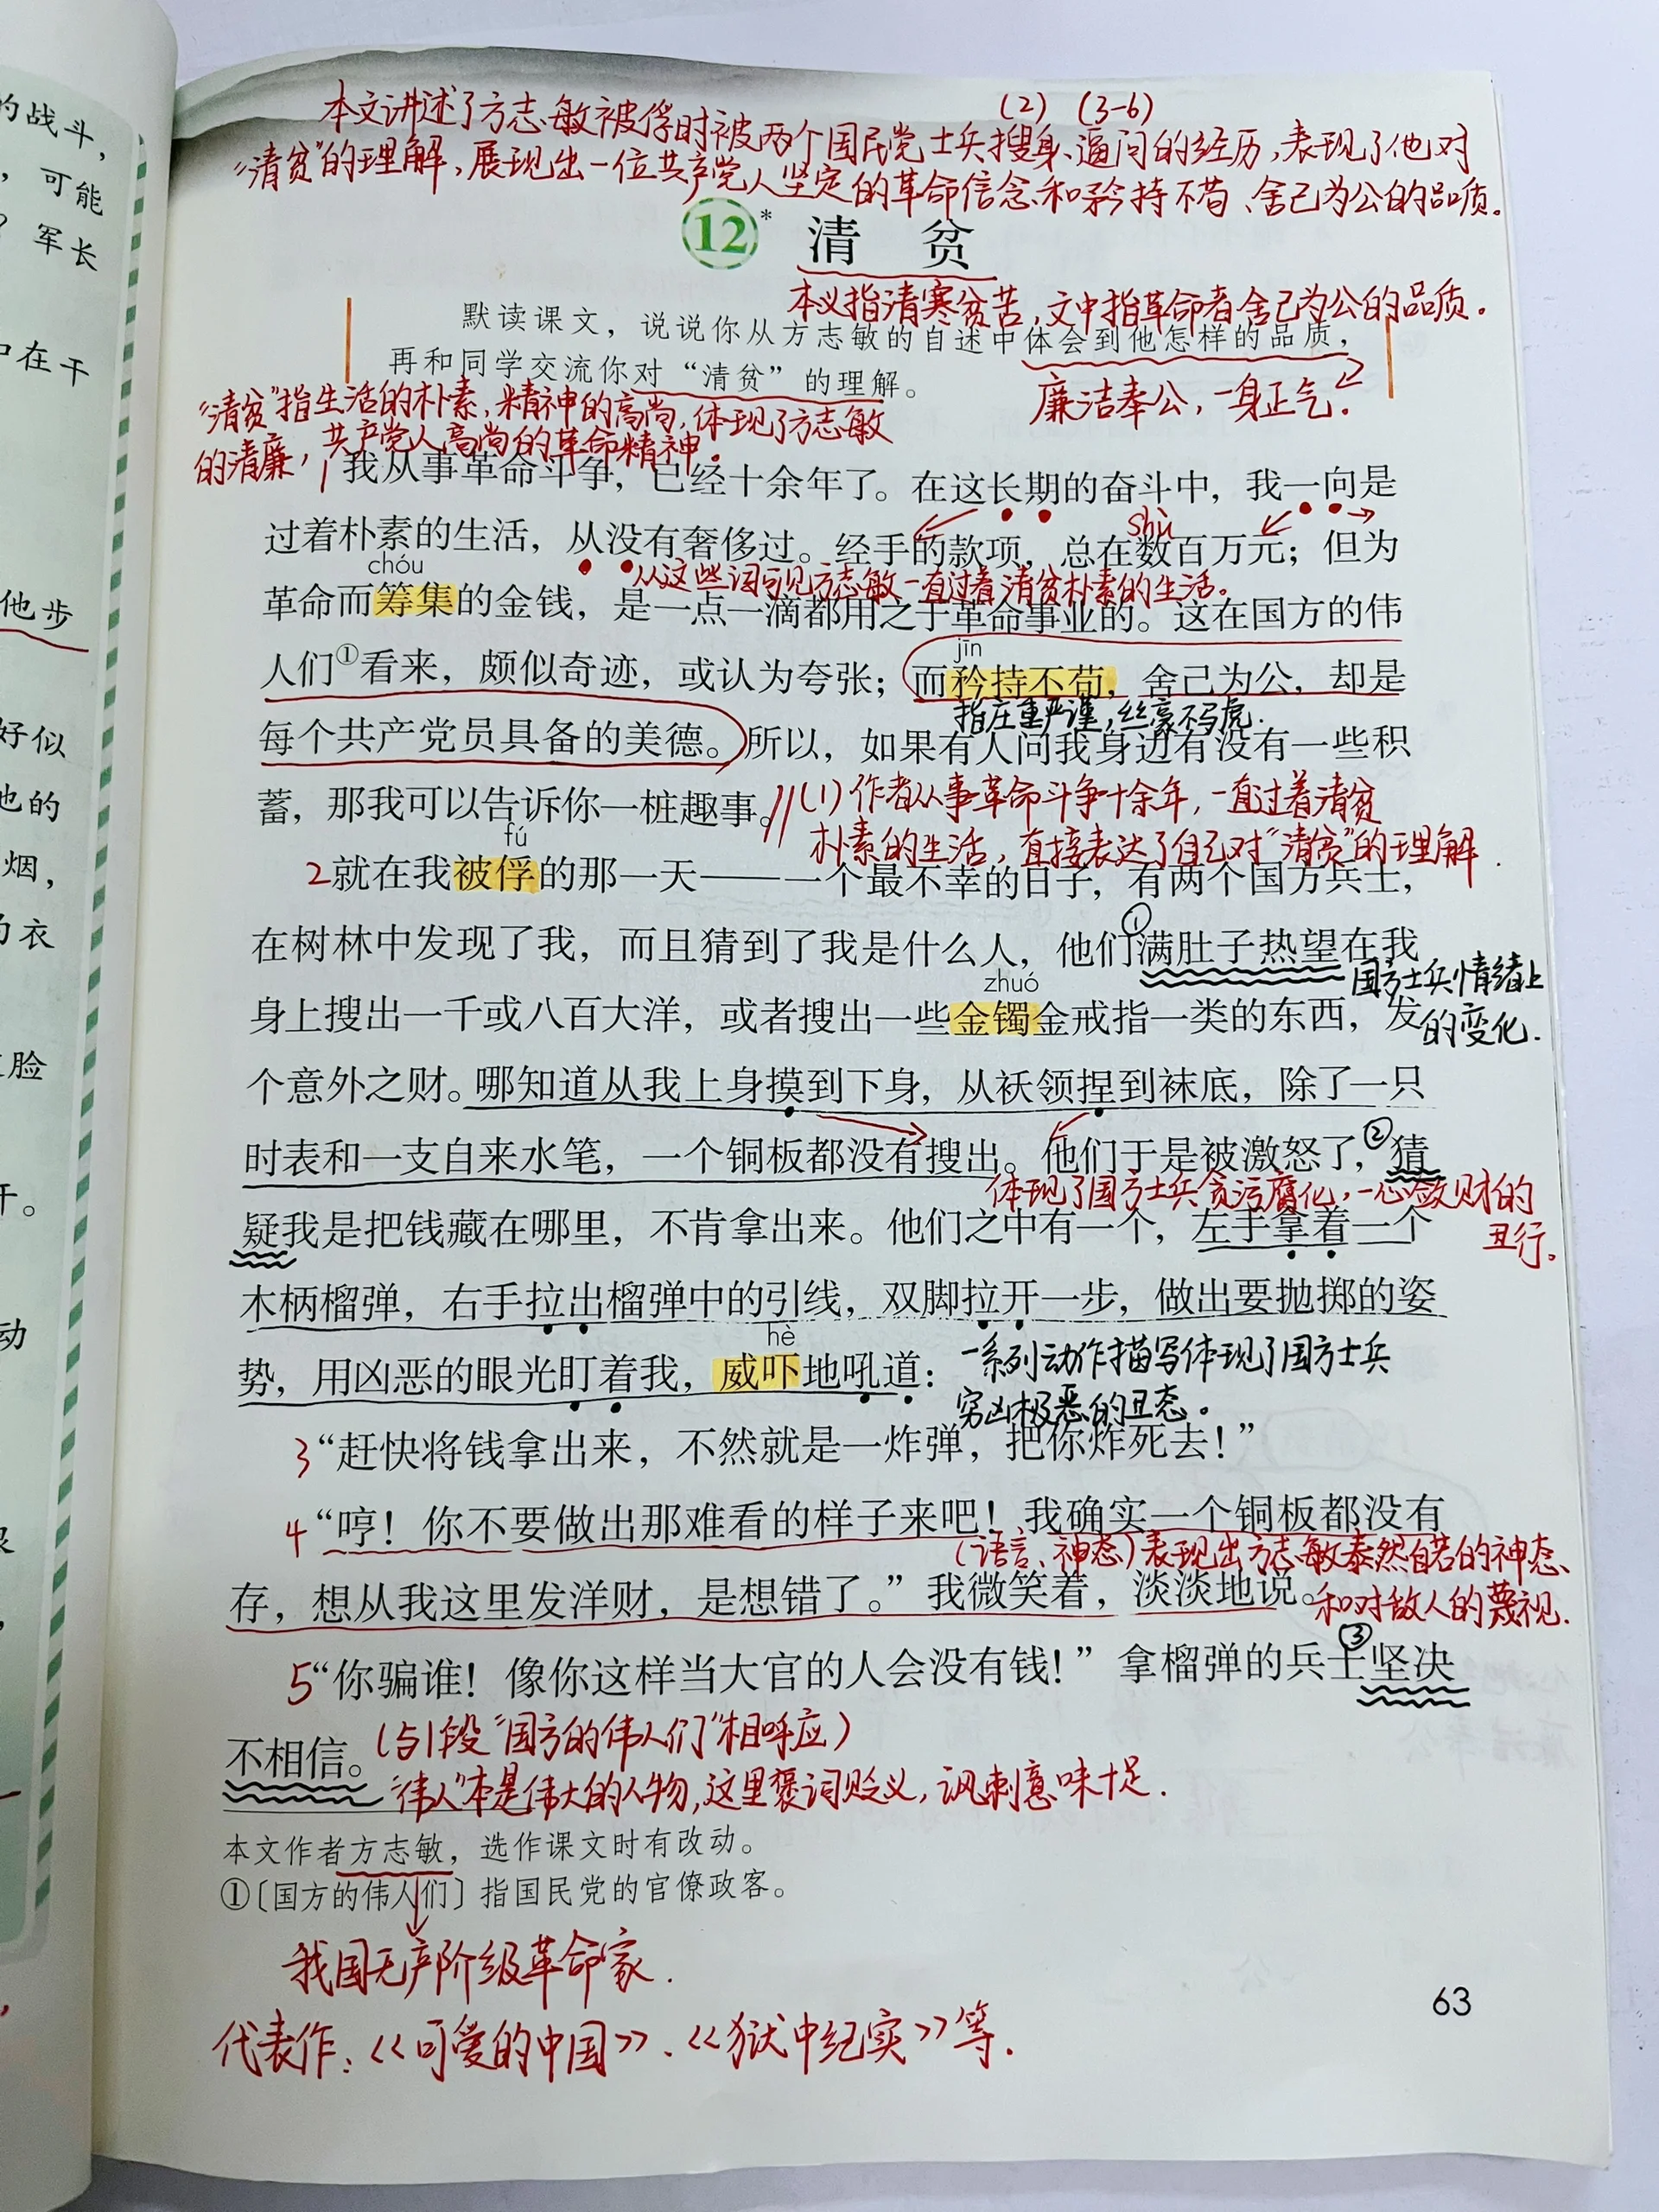 的战斗，
，可能
？军长
中在干
他步
好似
他的
烟，
的衣
脸
干。
动
本文讲述了方志敏被俘时被两个国民党士兵搜身、逼问的经历，表现了他对
(2) (3-6)
“清贫”的理解，展现出一位共产党人坚定的革命信念和矜持不苟、舍己为公的品质。
12* 清 贫
本义指清寒贫苦，文中指革命者舍己为公的品质。
默读课文，说说你从方志敏的自述中体会到他怎样的品质，
再和同学交流你对“清贫”的理解。
廉洁奉公，一身正气。
“清贫”指生活的朴素，精神的高尚，体现了方志敏
的清廉，共产党人高尚的革命精神。
1 我从事革命斗争，已经十余年了。在这长期的奋斗中，我一向是
shù
过着朴素的生活，从没有奢侈过。经手的款项，总在数百万元；但为
chóu
从这些词可见方志敏一直过着清贫朴素的生活。
革命而筹集的金钱，是一点一滴都用之于革命事业的。这在国方的伟
jīn
人们①看来，颇似奇迹，或认为夸张；而矜持不苟，舍己为公，却是
指庄重严谨，丝毫不马虎.
每个共产党员具备的美德。所以，如果有人问我身边有没有一些积
蓄，那我可以告诉你一桩趣事。
(1)作者从事革命斗争十余年，一直过着清贫
朴素的生活，直接表达了自己对“清贫”的理解
fú
2就在我被俘的那一天——一个最不幸的日子，有两个国方兵士，
①
在树林中发现了我，而且猜到了我是什么人，他们满肚子热望在我
国方士兵情绪上
的变化.
zhuó
身上搜出一千或八百大洋，或者搜出一些金镯金戒指一类的东西，发
个意外之财。哪知道从我上身摸到下身，从袄领捏到袜底，除了一只
时表和一支自来水笔，一个铜板都没有搜出。他们于是被激怒了，②猜
体现了国方士兵贪污腐化，一心敛财的
丑行。
疑我是把钱藏在哪里，不肯拿出来。他们之中有一个，左手拿着一个
木柄榴弹，右手拉出榴弹中的引线，双脚拉开一步，做出要抛掷的姿
hè
势，用凶恶的眼光盯着我，威吓地吼道：
一系列动作描写体现了国方士兵
穷凶极恶的丑态。
3“赶快将钱拿出来，不然就是一炸弹，把你炸死去！”
4“哼！你不要做出那难看的样子来吧！我确实一个铜板都没有
(语言、神态)表现出方志敏泰然自若的神态、
和对敌人的蔑视.
存，想从我这里发洋财，是想错了。”我微笑着，淡淡地说。
5“你骗谁！像你这样当大官的人会没有钱！”拿榴弹的兵士③坚决
不相信。
(与1段“国方的伟人们”相呼应)
“伟人”本是伟大的人物，这里褒词贬义，讽刺意味十足.
本文作者方志敏，选作课文时有改动。
①〔国方的伟人们〕指国民党的官僚政客。
我国无产阶级革命家.
代表作：《可爱的中国》、《狱中纪实》等.
63